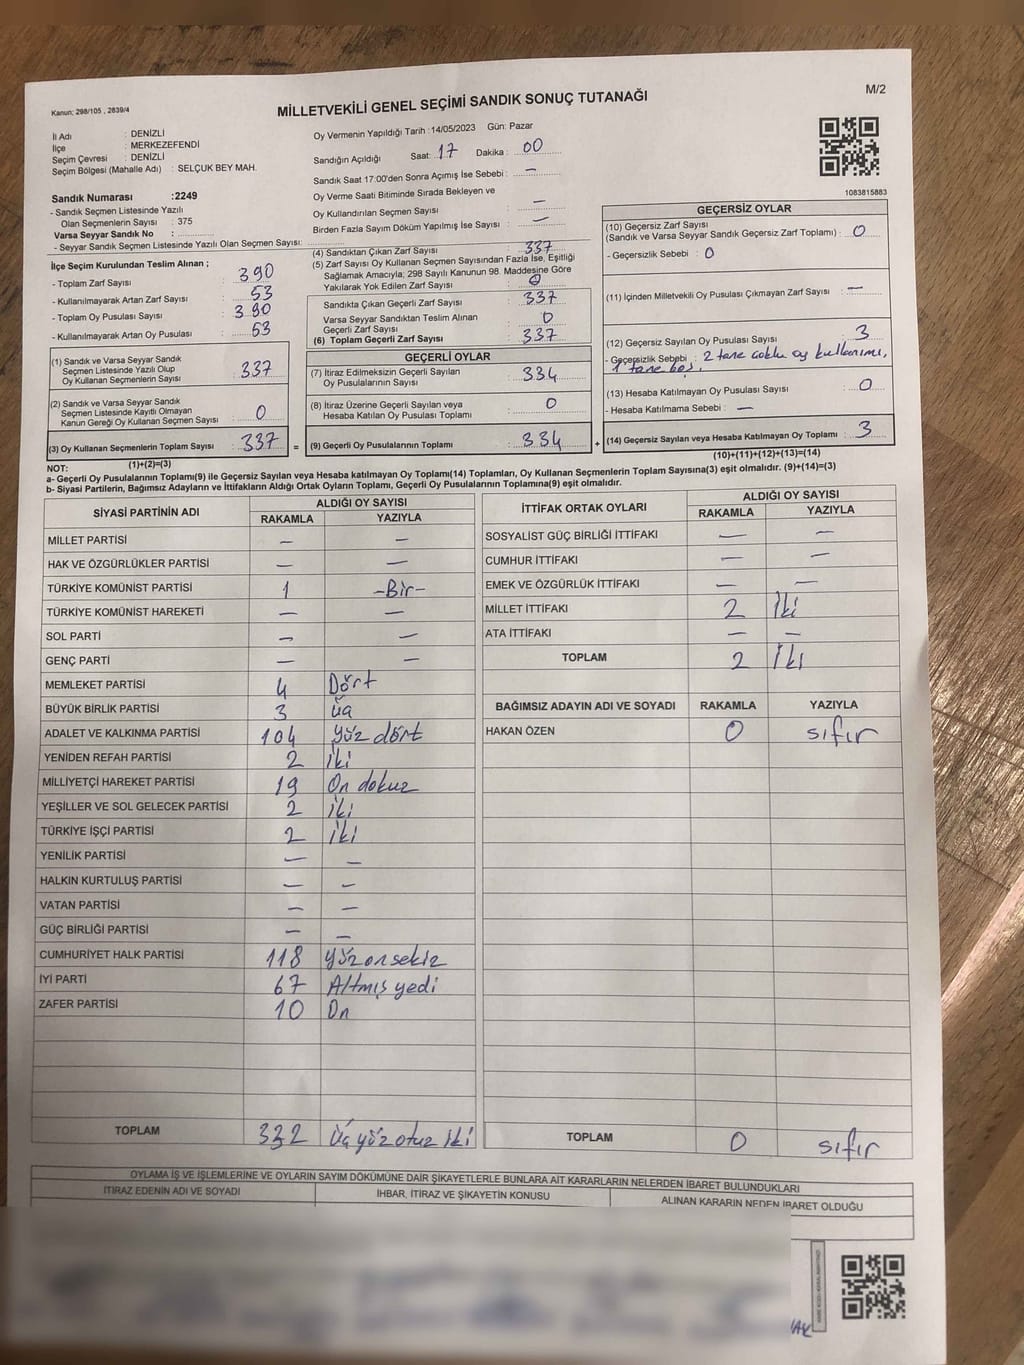 Kanun; 298/105 , 2839/4
MİLLETVEKİLİ GENEL SEÇİMİ SANDIK SONUÇ TUTANAĞI
M/2
İl Adı : DENİZLİ
İlçe : MERKEZEFENDİ
Seçim Çevresi : DENİZLİ
Seçim Bölgesi (Mahalle Adı) : SELÇUK BEY MAH.
Sandık Numarası :2249
- Sandık Seçmen Listesinde Yazılı
Olan Seçmenlerin Sayısı : 375
Varsa Seyyar Sandık No :
- Seyyar Sandık Seçmen Listesinde Yazılı Olan Seçmen Sayısı:
Oy Vermenin Yapıldığı Tarih :14/05/2023 Gün: Pazar
Sandığın Açıldığı Saat: 17 Dakika : 00
Sandık Saat 17:00'den Sonra Açımış İse Sebebi : —
Oy Verme Saati Bitiminde Sırada Bekleyen ve
Oy Kullandırılan Seçmen Sayısı : —
Birden Fazla Sayım Döküm Yapılmış İse Sayısı : —
1083815883
İlçe Seçim Kurulundan Teslim Alınan ;
- Toplam Zarf Sayısı : 390
- Kullanılmayarak Artan Zarf Sayısı : 53
- Toplam Oy Pusulası Sayısı : 390
- Kullanılmayarak Artan Oy Pusulası : 53
(1) Sandık ve Varsa Seyyar Sandık
Seçmen Listesinde Yazılı Olup
Oy Kullanan Seçmenlerin Sayısı : 337
(2) Sandık ve Varsa Seyyar Sandık
Seçmen Listesinde Kayıtlı Olmayan
Kanun Gereği Oy Kullanan Seçmen Sayısı : 0
(3) Oy Kullanan Seçmenlerin Toplam Sayısı : 337 =
(1)+(2)=(3)
(4) Sandıktan Çıkan Zarf Sayısı : 337
(5) Zarf Sayısı Oy Kullanan Seçmen Sayısından Fazla İse, Eşitliği
Sağlamak Amacıyla; 298 Sayılı Kanunun 98. Maddesine Göre
Yakılarak Yok Edilen Zarf Sayısı : 0
Sandıkta Çıkan Geçerli Zarf Sayısı : 337
Varsa Seyyar Sandıktan Teslim Alınan
Geçerli Zarf Sayısı : 0
(6) Toplam Geçerli Zarf Sayısı : 337
GEÇERLİ OYLAR
(7) İtiraz Edilmeksizin Geçerli Sayılan
Oy Pusulalarının Sayısı : 334
(8) İtiraz Üzerine Geçerli Sayılan veya
Hesaba Katılan Oy Pusulası Toplamı : 0
(9) Geçerli Oy Pusulalarının Toplamı : 334 +
GEÇERSİZ OYLAR
(10) Geçersiz Zarf Sayısı
(Sandık ve Varsa Seyyar Sandık Geçersiz Zarf Toplamı) : 0
- Geçersizlik Sebebi : 0
(11) İçinden Milletvekili Oy Pusulası Çıkmayan Zarf Sayısı : —
(12) Geçersiz Sayılan Oy Pusulası Sayısı : 3
- Geçersizlik Sebebi : 2 tane çoklu oy kullanımı,
1 tane boş.
(13) Hesaba Katılmayan Oy Pusulası Sayısı : 0
- Hesaba Katılmama Sebebi : —
(14) Geçersiz Sayılan veya Hesaba Katılmayan Oy Toplamı : 3
(10)+(11)+(12)+(13)=(14)
NOT:
a- Geçerli Oy Pusulalarının Toplamı(9) ile Geçersiz Sayılan veya Hesaba katılmayan Oy Toplamı(14) Toplamları, Oy Kullanan Seçmenlerin Toplam Sayısına(3) eşit olmalıdır. (9)+(14)=(3)
b- Siyasi Partilerin, Bağımsız Adayların ve İttifakların Aldığı Ortak Oyların Toplamı, Geçerli Oy Pusulalarının Toplamına(9) eşit olmalıdır.
SİYASİ PARTİNİN ADI ALDIĞI OY SAYISI
RAKAMLA YAZIYLA
MİLLET PARTİSİ — —
HAK VE ÖZGÜRLÜKLER PARTİSİ — —
TÜRKİYE KOMÜNİST PARTİSİ 1 -Bir-
TÜRKİYE KOMÜNİST HAREKETİ — —
SOL PARTİ — —
GENÇ PARTİ — —
MEMLEKET PARTİSİ 4 Dört
BÜYÜK BİRLİK PARTİSİ 3 üç
ADALET VE KALKINMA PARTİSİ 104 Yüz dört
YENİDEN REFAH PARTİSİ 2 iki
MİLLİYETÇİ HAREKET PARTİSİ 19 On dokuz
YEŞİLLER VE SOL GELECEK PARTİSİ 2 iki
TÜRKİYE İŞÇİ PARTİSİ 2 iki
YENİLİK PARTİSİ — —
HALKIN KURTULUŞ PARTİSİ — —
VATAN PARTİSİ — —
GÜÇ BİRLİĞİ PARTİSİ — —
CUMHURİYET HALK PARTİSİ 118 Yüz on sekiz
İYİ PARTİ 67 Altmış yedi
ZAFER PARTİSİ 10 On
TOPLAM 332 Üç yüz otuz iki
İTTİFAK ORTAK OYLARI ALDIĞI OY SAYISI
RAKAMLA YAZIYLA
SOSYALİST GÜÇ BİRLİĞİ İTTİFAKI — —
CUMHUR İTTİFAKI — —
EMEK VE ÖZGÜRLÜK İTTİFAKI — —
MİLLET İTTİFAKI 2 İki
ATA İTTİFAKI — —
TOPLAM 2 İki
BAĞIMSIZ ADAYIN ADI VE SOYADI RAKAMLA YAZIYLA
HAKAN ÖZEN 0 sıfır
TOPLAM 0 sıfır
OYLAMA İŞ VE İŞLEMLERİNE VE OYLARIN SAYIM DÖKÜMÜNE DAİR ŞİKAYETLERLE BUNLARA AİT KARARLARIN NELERDEN İBARET BULUNDUKLARI
İTİRAZ EDENİN ADI VE SOYADI İHBAR, İTİRAZ VE ŞİKAYETİN KONUSU ALINAN KARARIN NEDEN İBARET OLDUĞU